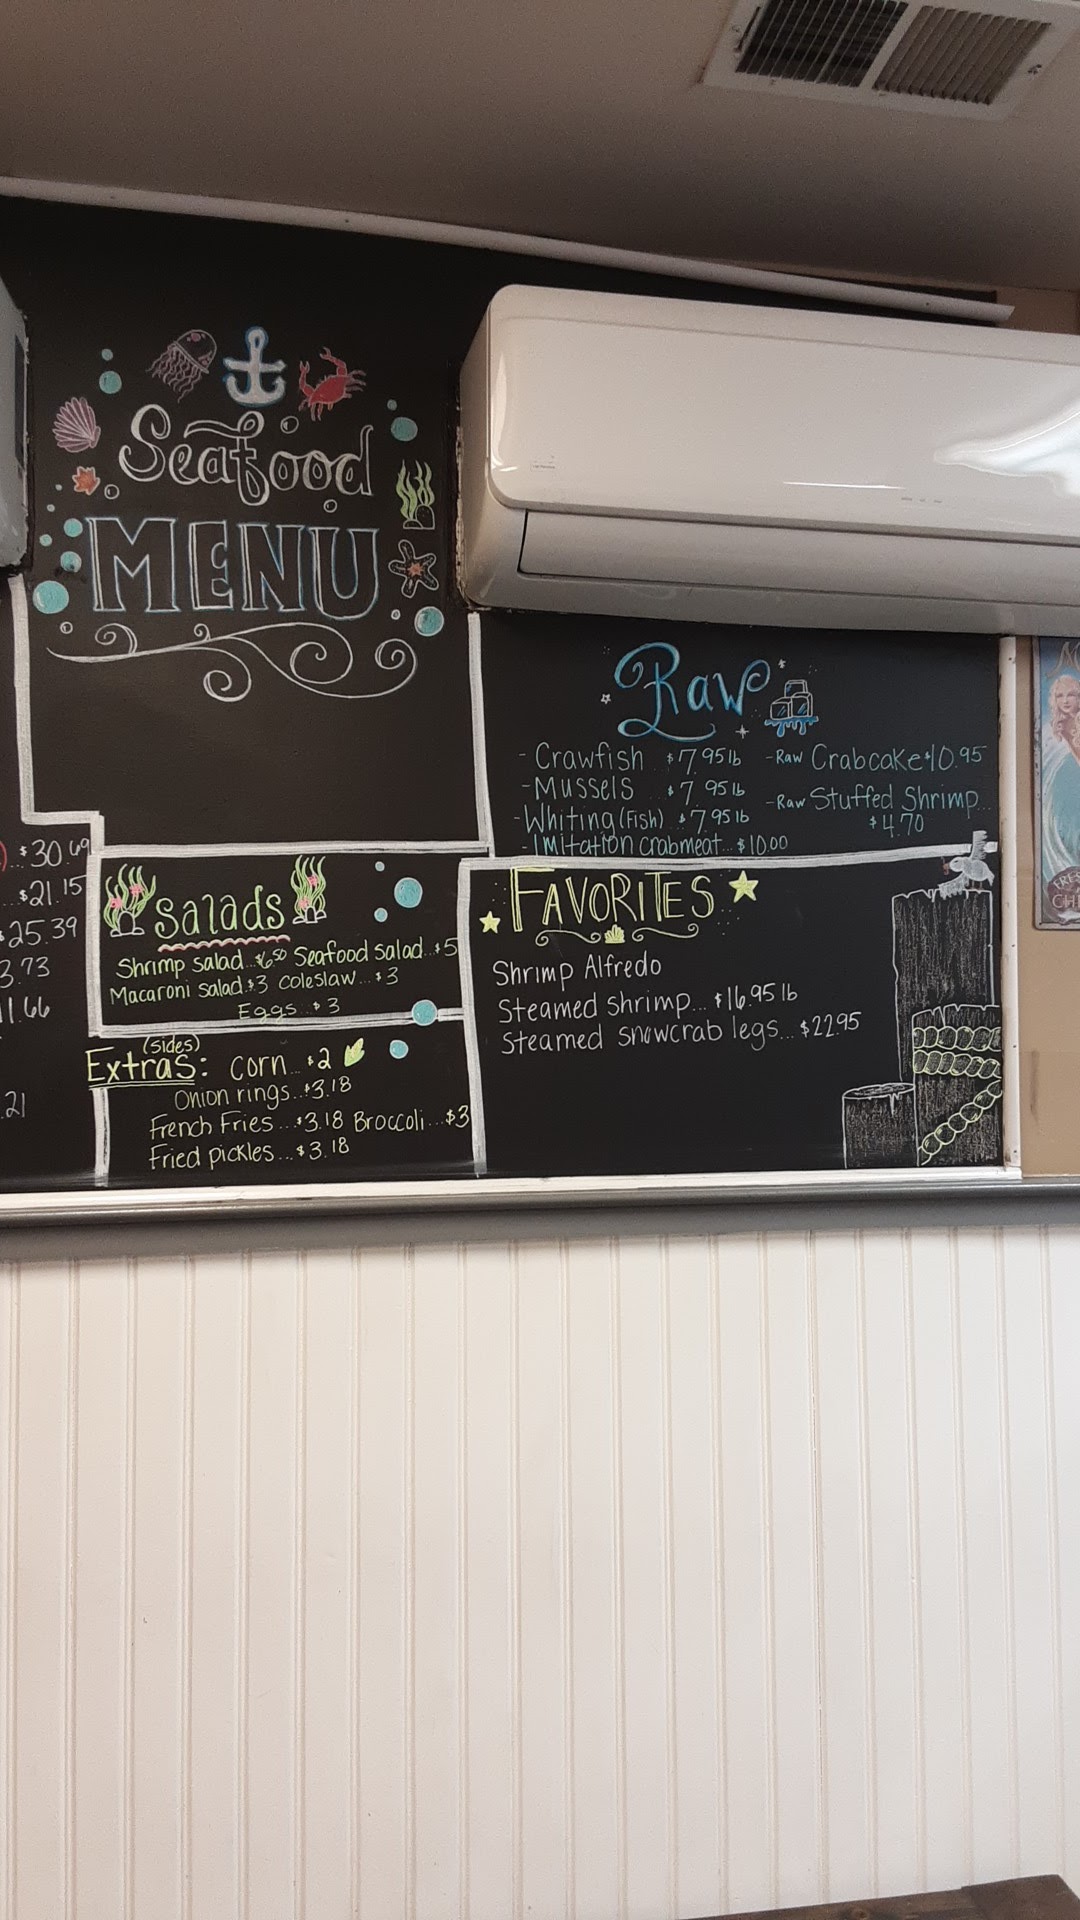 Seafood
MENU
Raw
- Crawfish ..$7.95 lb
- Mussels ..$7.95 lb
- Whiting (Fish) ..$7.95 lb
- Imitation crabmeat...$10.00
- Raw Crabcake $10.95
- Raw Stuffed Shrimp...
$4.70
)...$30.69
...$21.15
$25.39
3.73
1.66
.21
Salads
Shrimp salad...$6.50 Seafood salad...$5
Macaroni salad.$3 Coleslaw...$3
Eggs...$3
(sides)
Extras: corn...$2
Onion rings...$3.18
French Fries...$3.18 Broccoli...$3
Fried pickles...$3.18
FAVORITES
Shrimp Alfredo
Steamed shrimp...$16.95 lb
Steamed snowcrab legs...$22.95
FRES
CH